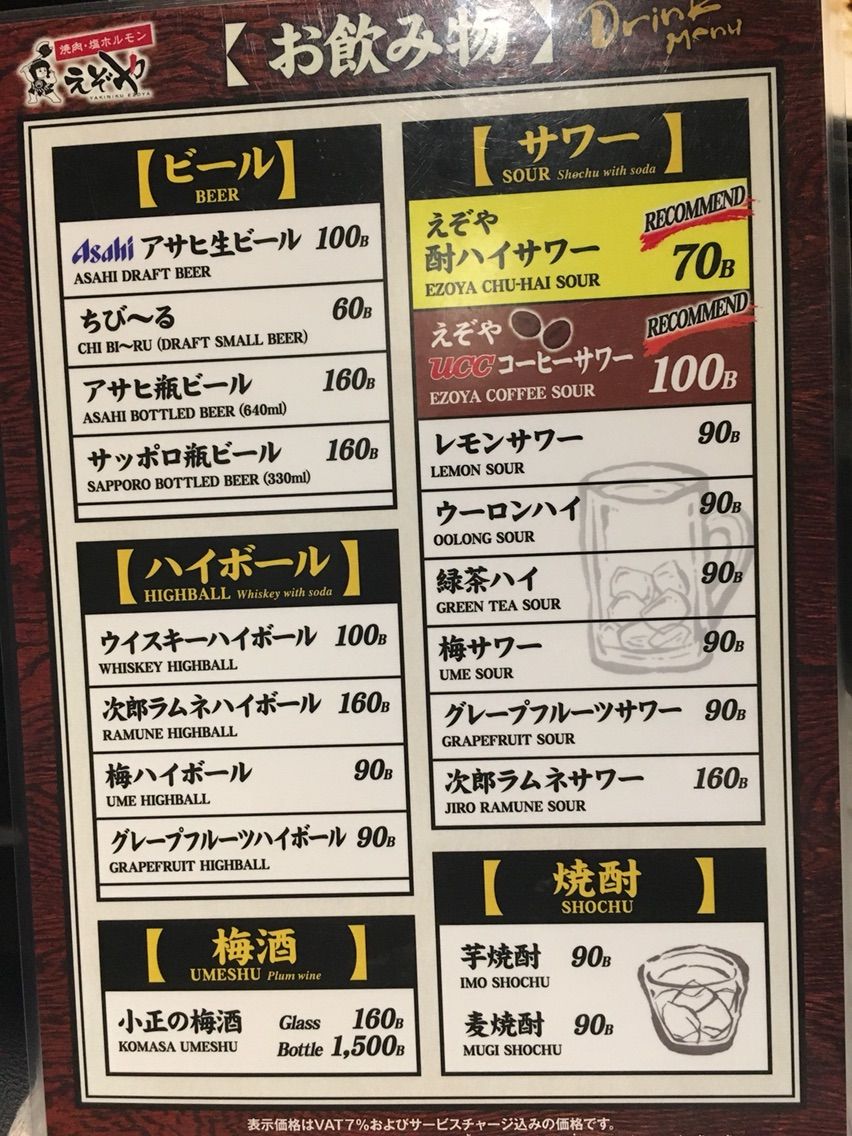 焼肉・塩ホルモン
えぞや
YAKINIKU EZOYA
【お飲み物】
Drink Menu
【ビール】
BEER
Asahi アサヒ生ビール 100B
ASAHI DRAFT BEER
ちび〜る 60B
CHI BI〜RU (DRAFT SMALL BEER)
アサヒ瓶ビール 160B
ASAHI BOTTLED BEER (640ml)
サッポロ瓶ビール 160B
SAPPORO BOTTLED BEER (330ml)
【ハイボール】
HIGHBALL Whiskey with soda
ウイスキーハイボール 100B
WHISKEY HIGHBALL
次郎ラムネハイボール 160B
RAMUNE HIGHBALL
梅ハイボール 90B
UME HIGHBALL
グレープフルーツハイボール 90B
GRAPEFRUIT HIGHBALL
【梅酒】
UMESHU Plum wine
小正の梅酒 Glass 160B
KOMASA UMESHU Bottle 1,500B
【サワー】
SOUR Shochu with soda
えぞや RECOMMEND
酎ハイサワー 70B
EZOYA CHU-HAI SOUR
えぞや RECOMMEND
UCC コーヒーサワー 100B
EZOYA COFFEE SOUR
レモンサワー 90B
LEMON SOUR
ウーロンハイ 90B
OOLONG SOUR
緑茶ハイ 90B
GREEN TEA SOUR
梅サワー 90B
UME SOUR
グレープフルーツサワー 90B
GRAPEFRUIT SOUR
次郎ラムネサワー 160B
JIRO RAMUNE SOUR
【焼酎】
SHOCHU
芋焼酎 90B
IMO SHOCHU
麦焼酎 90B
MUGI SHOCHU
表示価格はVAT7%およびサービスチャージ込みの価格です。